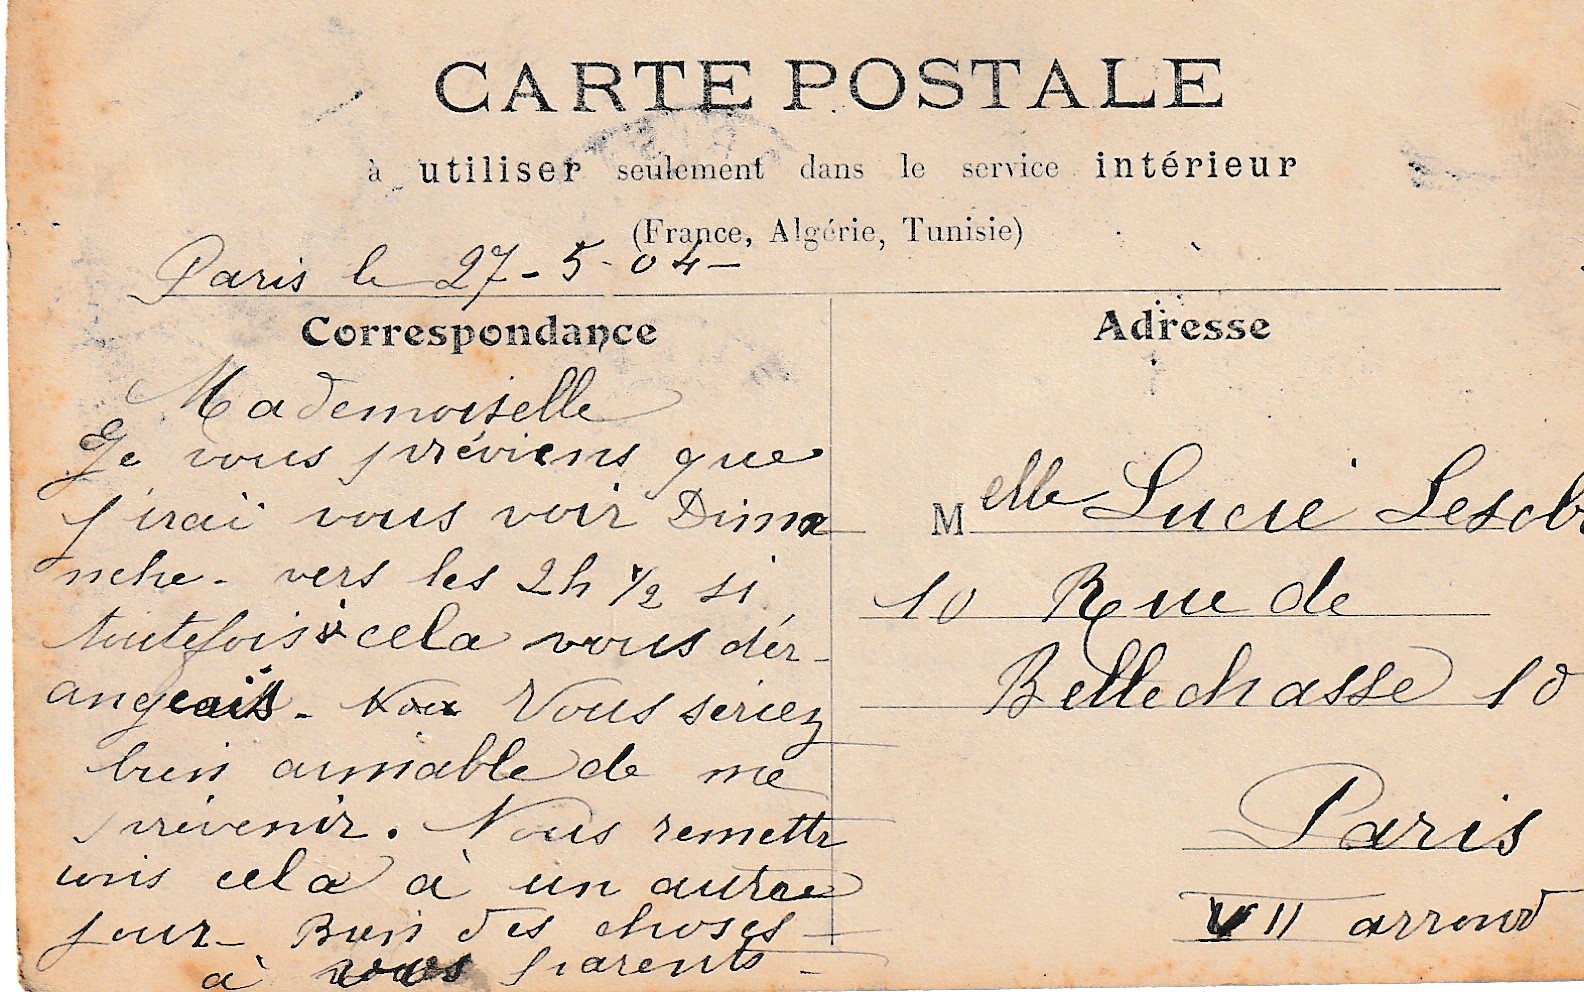 CARTE POSTALE
à utiliser seulement dans le service intérieur
(France, Algérie, Tunisie)
Paris le 27-5-04-
Correspondance
Mademoiselle
Je vous préviens que
j'irai vous voir Dima
nche - vers les 2h 1/2 si
toutefois cela vous dér-
angeais - Vous seriez
bien aimable de me
prévenir. Nous remettr
ions cela à un autre
jour - Bien des choses
à vos parents -
Adresse
Melle Lucie
10 Rue de
Bellechasse 10
Paris
VII arrond